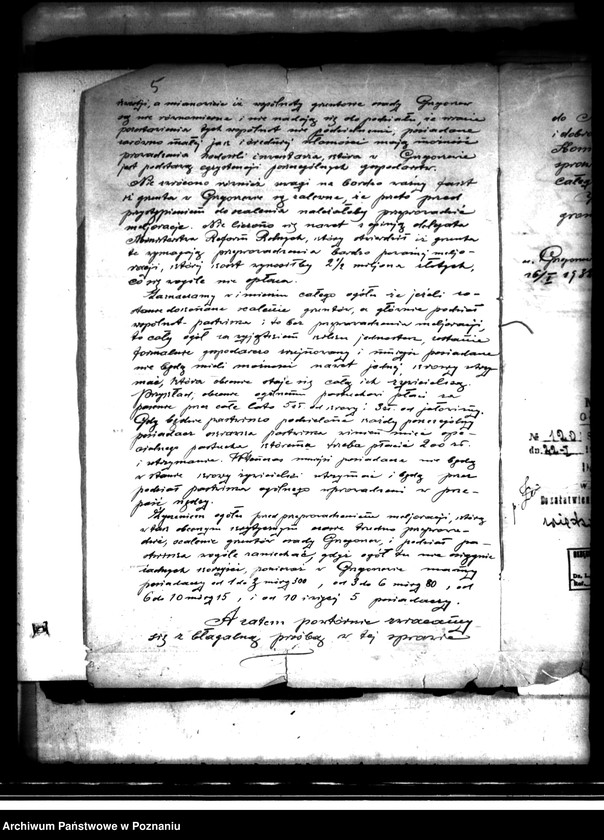 5
kwotji, a mianowicie iż wspólnoty gruntowe osady Gnyonow
są nie równomierne i nie nadają się do podziału, że wrazie
pozostawienia tych wspólnot nie podzielnemi, posiadacze
zarówno małej jak i średniej własności mają możność
prowadzenia hodowli inwentarza, która w Gnyonowie
jest podstawą egzystencji poszczególnych gospodarzy.
Nie zwrócono również uwagi na bardzo ważny fakt
iż grunta w Gnyonowie są zalewne, że przeto przed
przystąpieniem do scalenia należałoby przeprowadzić
meljoracje. Nie liczono się nawet z opinją delegata
Ministerstwa Reform Rolnych, który stwierdził iż grunta
te wymagają przeprowadzenia bardzo poważnej meljo-
racji, której koszt wynosiłby 2½ miljona złotych,
co się wogóle nie opłaca.
Zaznaczamy w imieniu całego ogółu że jeżeli zo-
stanie dokonane scalenie gruntów, a głównie podział
wspólnot pastwisk i to bez przeprowadzenia meljoracji,
to cały ogół za wyjątkiem kilku jednostek, zostanie
formalnie gospodarczo zrujnowany i mniejsi posiadacze
nie będą mieli możności nawet jednej krowy utrzy-
mać, która obecnie staje się całą ich żywicielką.
Przykład, obecnie ogólnemu pastuchowi płaci za
pasenie przez całe lato 5 zł od krowy i 3 zł od jałowizny.
Gdy będzie pastwisko podzielone każdy poszczególny
posiadacz pastwiska winien mieć spe-
cjalnego pastucha któremu trzeba płacić 200 zł.
i utrzymanie. Wówczas mniejsi posiadacze nie będą
w stanie krowy żywicielki utrzymać i będą przez
podział pastwiska ogólnego wprowadzeni w prze-
paść nędzy.
Życzeniem ogółu przed przeprowadzeniem meljoracji, którą
w tak obecnym krytycznym czasie trudno przeprowa-
dzić, scalenie gruntów osady Gnyonow, i podział pa-
stwiska wogóle zaniechać, gdyż ogół tu nie osiągnie
żadnych korzyści, ponieważ w Gnyonowie mamy
posiadaczy od 1 do 3 mórg 300, od 3 do 6 mórg 80, od
6 do 10 mórg 15, i od 10 i więcej 5 posiadaczy.
A zatem powtórnie zwracamy
się z błagalną prośbą w tej sprawie
do
i dobra
Kom
spra
całeg
gran
16/I 198
№ 120
dn. 22-I
Do załatwien
Archiwum Państwowe w Poznaniu